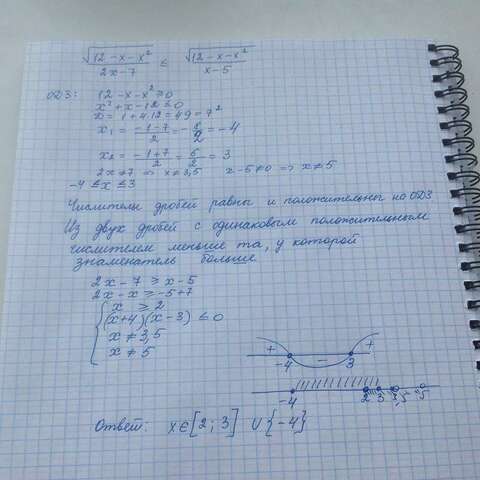 √(12-x-x²)/(2x-7) ≤ √(12-x-x²)/(x-5)
ОДЗ: 12-x-x² ≥ 0
x²+x-12 ≤ 0
D = 1+4·12 = 49 = 7²
x₁ = (-1-7)/2 = -8/2 = -4
x₂ = (-1+7)/2 = 6/2 = 3
2x ≠ 7 ⇒ x ≠ 3,5 x-5 ≠ 0 ⇒ x ≠ 5
-4 ≤ x ≤ 3
Числители дробей равны и положительны на ОДЗ
Из двух дробей с одинаковым положительным
числителем меньше та, у которой
знаменатель больше
2x-7 ≥ x-5
2x-x ≥ -5+7
x ≥ 2
(x+4)(x-3) ≤ 0
x ≠ 3,5
x ≠ 5
+ -4 - 3 +
-4 2 3 3,5 5
Ответ: x∈[2;3] ∪{-4}